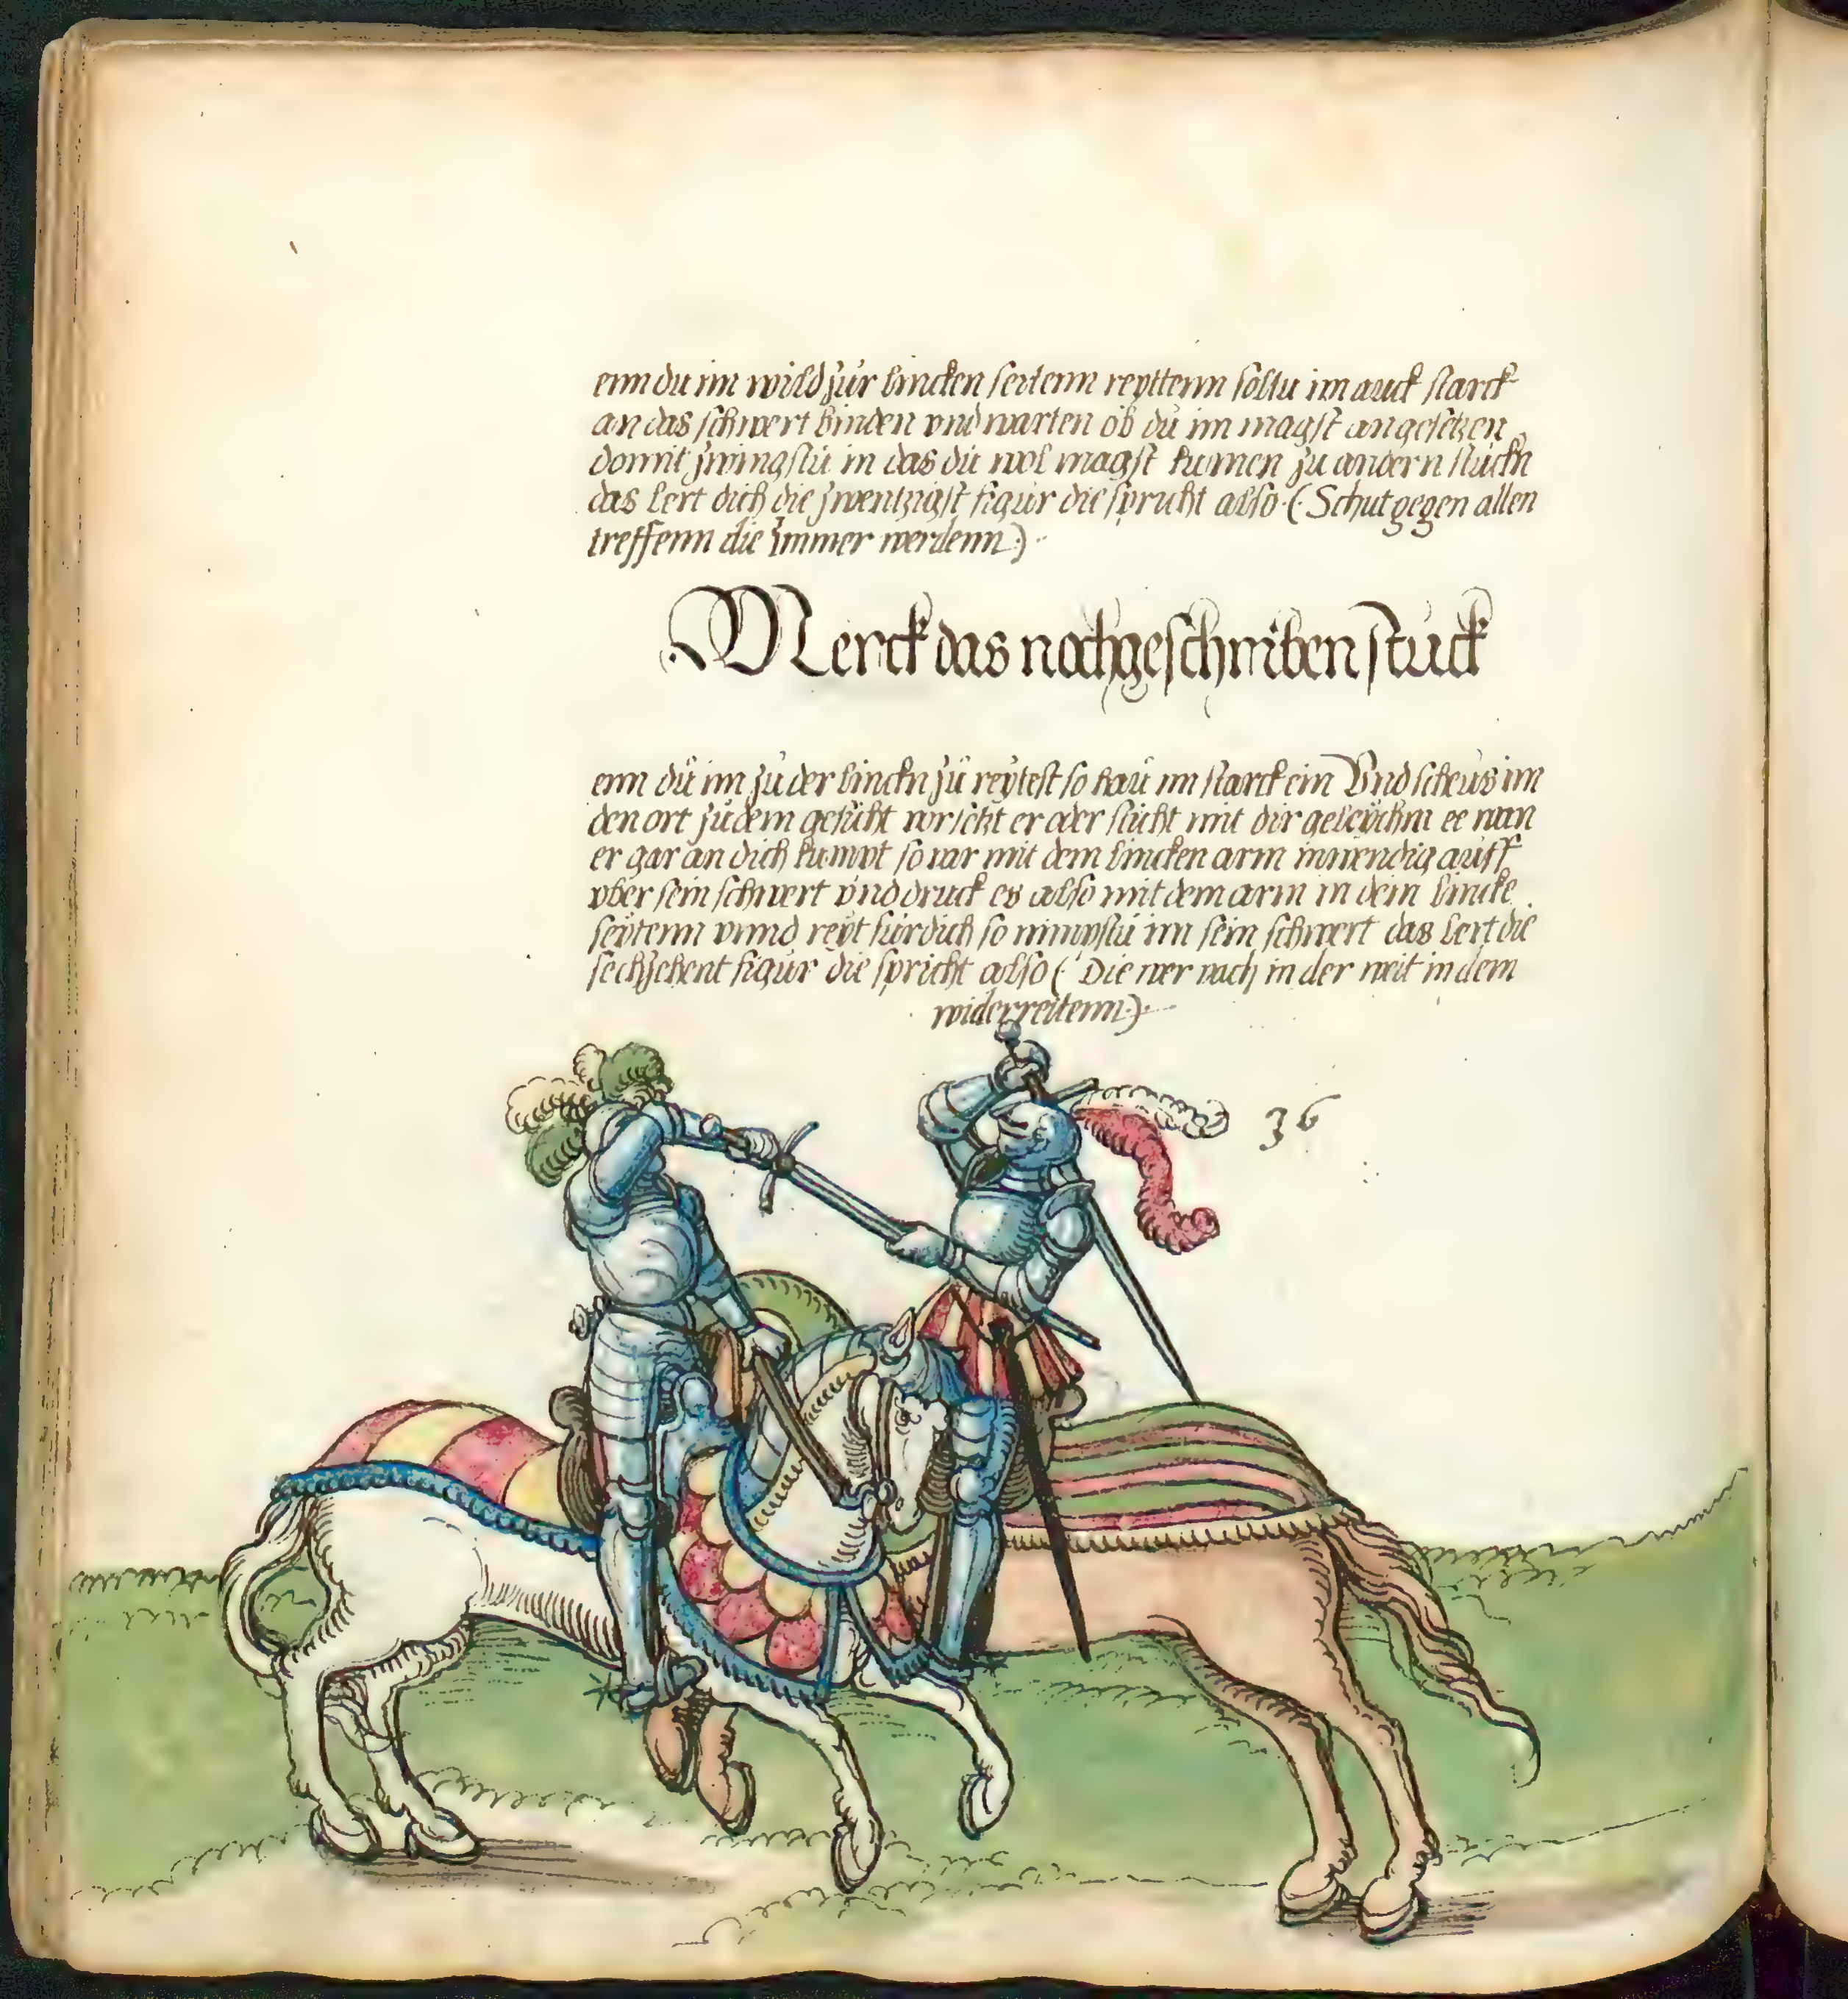 enn du im wild zur lincken seitenn reyttenn soltu im auch starck
an das schwert binden vnd warten ob du im magst angesetzen
domit zwingstu in das du wol magst kumen zu andern stuckn
das lert dich die zwentzigst figur die spricht also (Schut gegen allen
treffenn die ymmer werdenn)
Merck das nachgeschriben stuck
enn dü im zu der linckn zü reytest so hau im starck ein Vnd scheus im
den ort zu dem gesicht vorsetzt er oder sticht mit dir geleychn ee nun
er gar an dich kumpt so var mit dem lincken arm inwendig auff
vber sein schwert vnd druck es also mit dem arm in dein lincke
seytenn vnnd reyt fürdich so nimpstu im sein schwert das lert die
sechzehent figur die spricht also (Die wer nach in der weit in dem
widerreitenn)
36